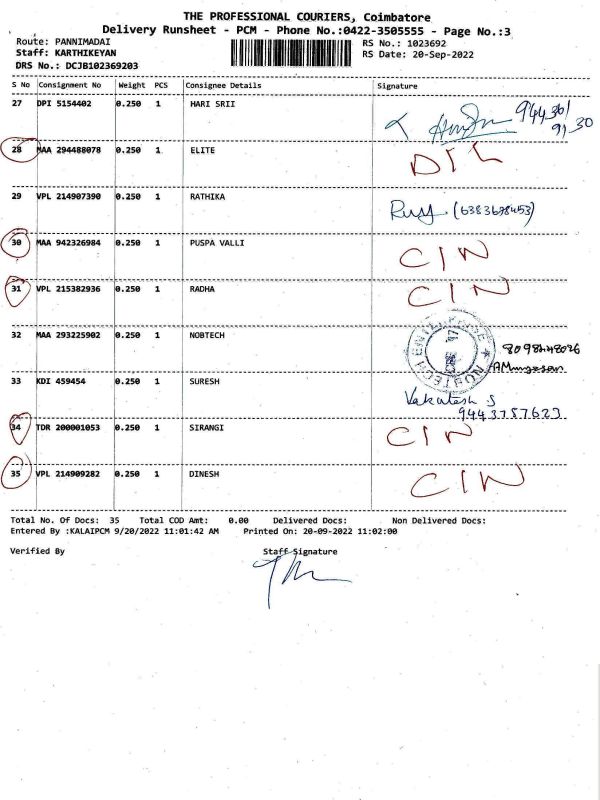 THE PROFESSIONAL COURIERS, Coimbatore
Delivery Runsheet - PCM - Phone No.:0422-3505555 - Page No.:3
Route: PANNIMADAI RS No.: 1023692
Staff: KARTHIKEYAN RS Date: 20-Sep-2022
DRS No.: DCJB102369203
S No Consignment No Weight PCS Consignee Details Signature
27 DPI 5154402 0.250 1 HARI SRII
94436/
91 30
28 MAA 294488078 0.250 1 ELITE DIL
29 VPL 214907390 0.250 1 RATHIKA (6383678453)
30 MAA 942326984 0.250 1 PUSPA VALLI CIN
31 VPL 215382936 0.250 1 RADHA CIN
32 MAA 293225902 0.250 1 NOBTECH NOBTECH ENTERPRISE
33 KDI 459454 0.250 1 SURESH Vakatesh S
9443757623
34 TDR 200001053 0.250 1 SIRANGI CIN
35 VPL 214909282 0.250 1 DINESH CIN
Total No. Of Docs: 35 Total COD Amt: 0.00 Delivered Docs: Non Delivered Docs:
Entered By :KALAIPCM 9/20/2022 11:01:42 AM Printed On: 20-09-2022 11:02:00
Verified By Staff Signature